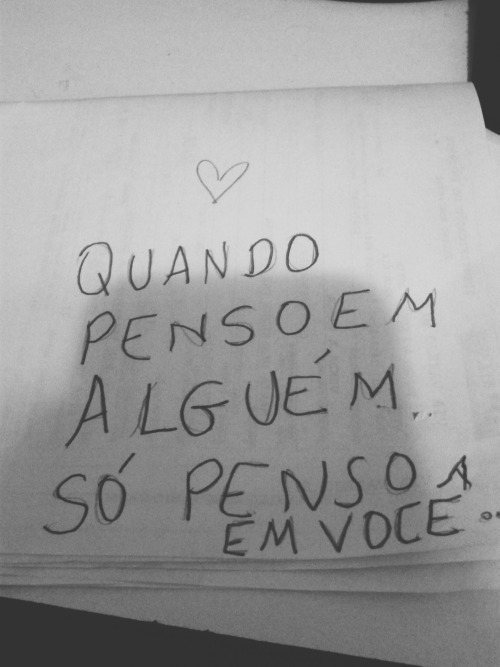 QUANDO
PENSO EM
ALGUÉM..
SÓ PENSO
EM VOCÊ..